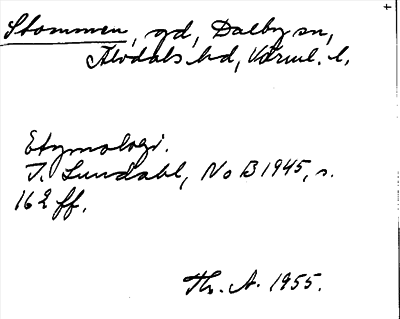 Stommen, gd, Dalby sn,
Älvdals hd, Värml. l.
Etymologi.
I. Lundahl, NoB 1945, s.
162 ff.
Th. A. 1955.